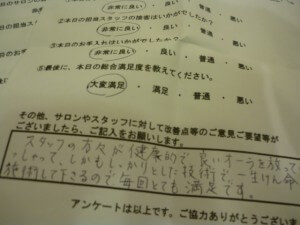 ②本日の担当スタッフの接客はいかがでしたか？
非常に良い ・ 良い ・ 普通 ・ 悪い
③本日のお手入れはいかがでしたか？
非常に良い ・ 良い ・ 普通 ・ 悪い
⑤最後に、本日の総合満足度を教えてください。
大変満足 ・ 満足 ・ 普通 ・ 悪い
その他、サロンやスタッフに対して改善点等のご意見ご要望等が
ございましたら、ご記入をお願いします。
スタッフの方々が健康的で良いオーラを放って
しゃって、しかもしっかりとした技術で、一生けん命
施術して下さるので、毎回とても満足です。
アンケートは以上です。ご協力ありがとうございま